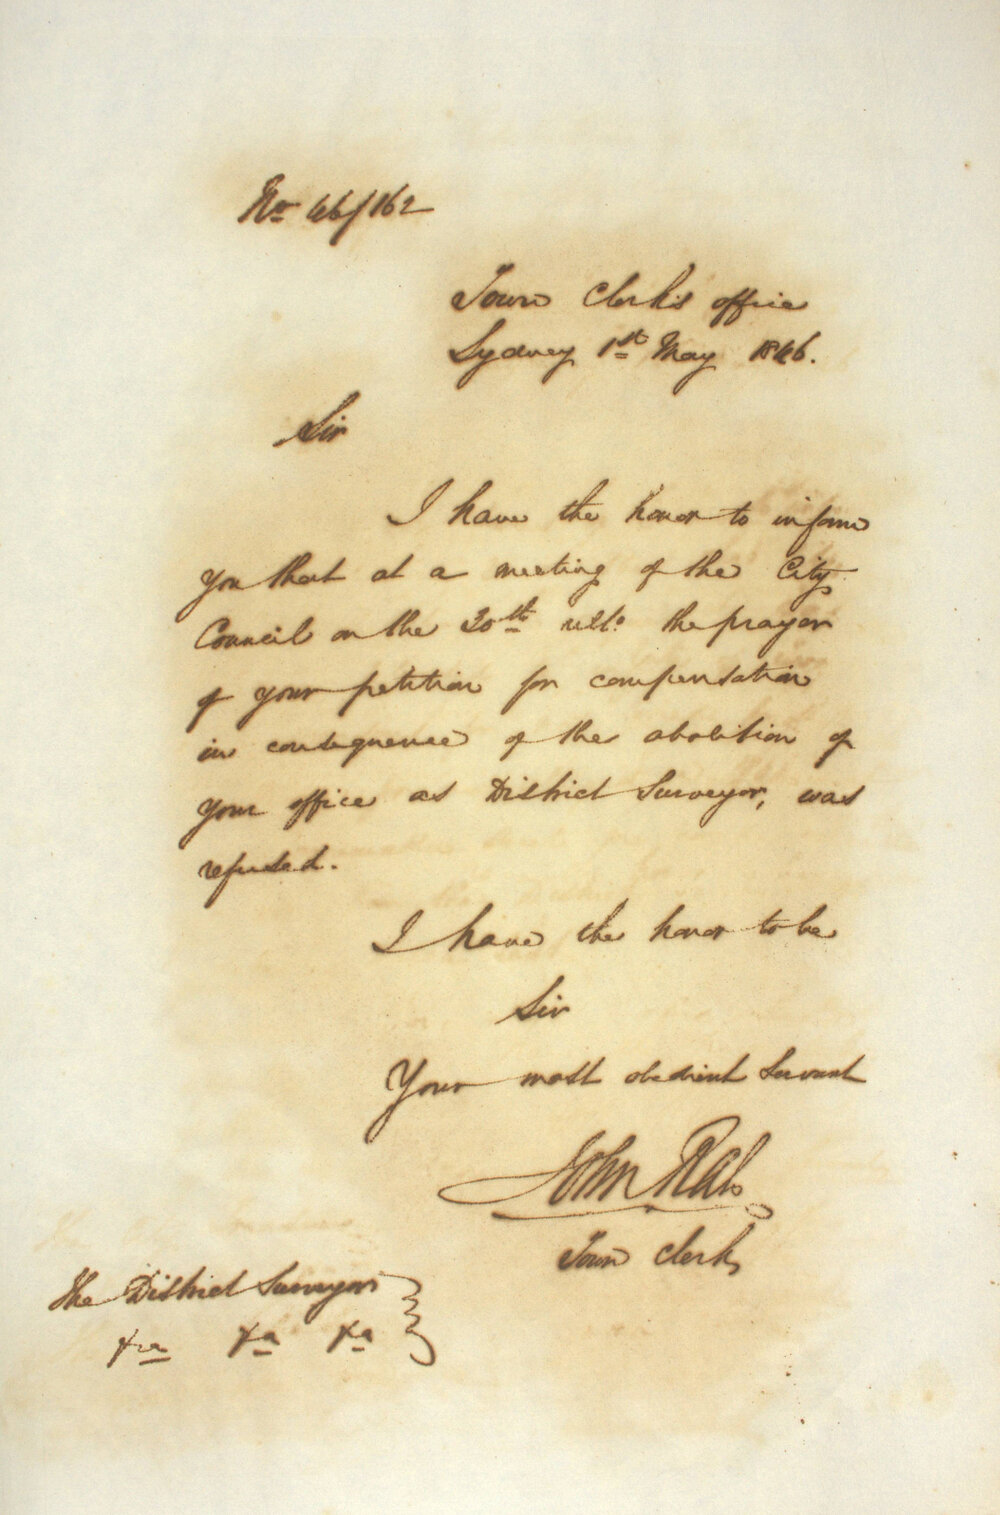 No 46/162
Town Clerk's office
Sydney 1st May 1846.
Sir
I have the honor to inform
you that at a meeting of the City
Council on the 30th ulto. the prayer
of your petition for compensation
in consequence of the abolition of
your office as District Surveyor, was
refused.
I have the honor to be
Sir
Your most obedient Servant
John Rae
Town Clerk
The District Surveyor
&ca &ca &ca